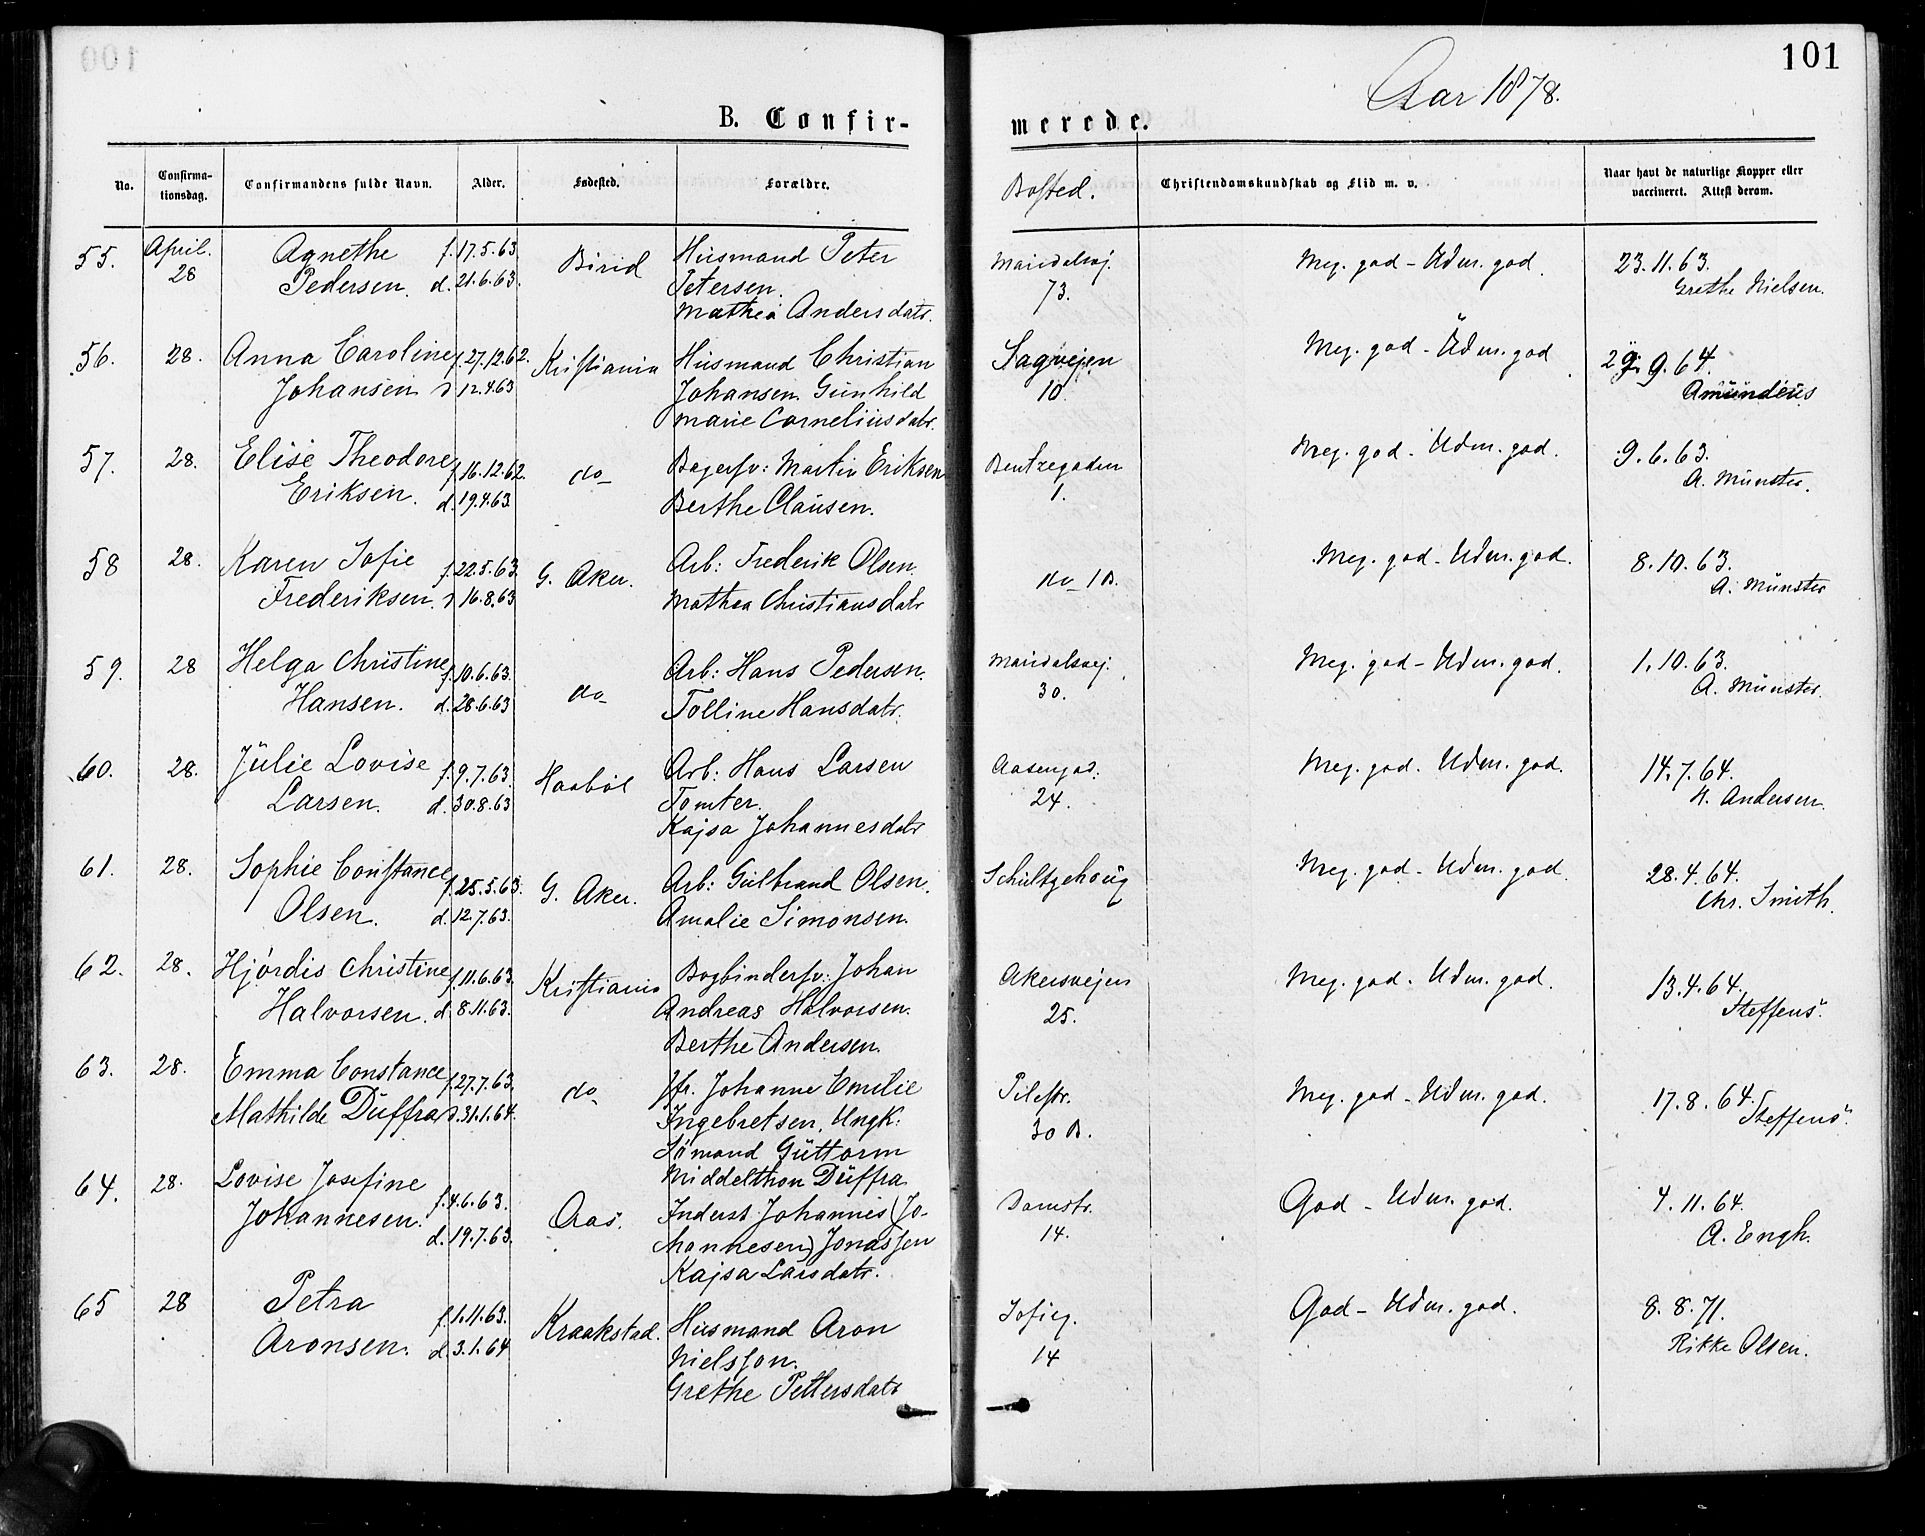 101
Aar 1878.
B. Confir-
merede.
No.
Confirma-
tionsdag.
Confirmandens fulde Navn.
Alder.
Fødested.
Forældre.
Bosted.
Christendomskundskab og Flid m. v.
Naar havt de naturlige Kopper eller
vaccineret. Attest derom.
55. April. Agnethe f. 17.5.63. Birid Husmand Peter Maridalsvej. Meg. god - Udm. god. 23.11.63.
28 Pedersen. d. 21.6.63. Petersen. 73. Grethe Nielsen.
Mathea Andersdatr.
56. 28. Anna Caroline f. 27.12.62. Kristiania Husmand Christian Sagvejen Meg. god - Udm. god 29. 9. 64.
Johansen d 12.4.63 Johansen. Gunhild 10. Amundeus
Marie Corneliusdatr.
57. 28. Elise Theodore f. 16.12.62. do Bagersv: Martin Eriksen Bentsegaden Meg. god - Udm. god. 9.6.63.
Eriksen. d. 19.4.63. Berthe Clausen. 1. A. Münster.
58 28. Karen Sofie f. 22.5.63. G. Aker. Arb: Frederik Olsen. do 1B. Meg. god - Udm. god. 8.10.63.
Frederiksen. d 16.8.63 Mathea Christiansdatr A. Münster
59. 28 Helga Christine f. 10.6.63. do Arb: Hans Pedersen. Maridalsvej. Meg. god - Udm. god. 1.10.63.
Hansen. d. 28.6.63 Tolline Hansdatr. 30. A. Münster.
60. 28. Julie Lovise f. 9.7.63. Haabøl Arb: Hans Larsen Aasengad: Meg. god. Udm. god. 14.7.64.
Larsen. d. 30.8.63 Tomter. 24. H. Andersen.
Kajsa Johannesdatr
61. 28. Sophie Constance f. 25.5.63. G. Aker. Arb: Gulbrand Olsen. Schultzehoug Meg. god - Udm. god. 28.4.64.
Olsen. d. 12.7.63. Amalie Simonsen. Chr. Smith.
62. 28. Hjördis Christine f. 11.6.63. Kristiania Bogbindersv: Johan Akersvejen Meg. god. Udm. god. 13.4.64.
Halvorsen. d. 8.11.63. Andreas Halvorsen. 25. Steffens.
Berthe Andersen.
63. 28. Emma Constance f. 27.7.63. do Jfr. Johanne Emilie Pilestr. Meg. god - Udm. god. 17.8.64.
Mathilde Düffra d. 31.1.64. Ingebretsen, Ungk: 30 B. Steffens
Sömand Guttorm
Middelthon Düffra
64. 28. Lovise Josefine f. 4.6.63. Aas. Inderst Johannes (Jo- Damstr. God - Udm. god. 4.11.64.
Johannesen. d. 19.7.63. hannesen) Jonassen 14. A. Engh.
Kajsa Larsdatr.
65 28 Petra f. 1.11.63. Kraakstad. Husmand Aron Sofieg. God - Udm. god. 8.8.71.
Aronsen. d. 3.1.64 Nielsson. 14 Rikke Olsen.
Grethe Pettersdatr